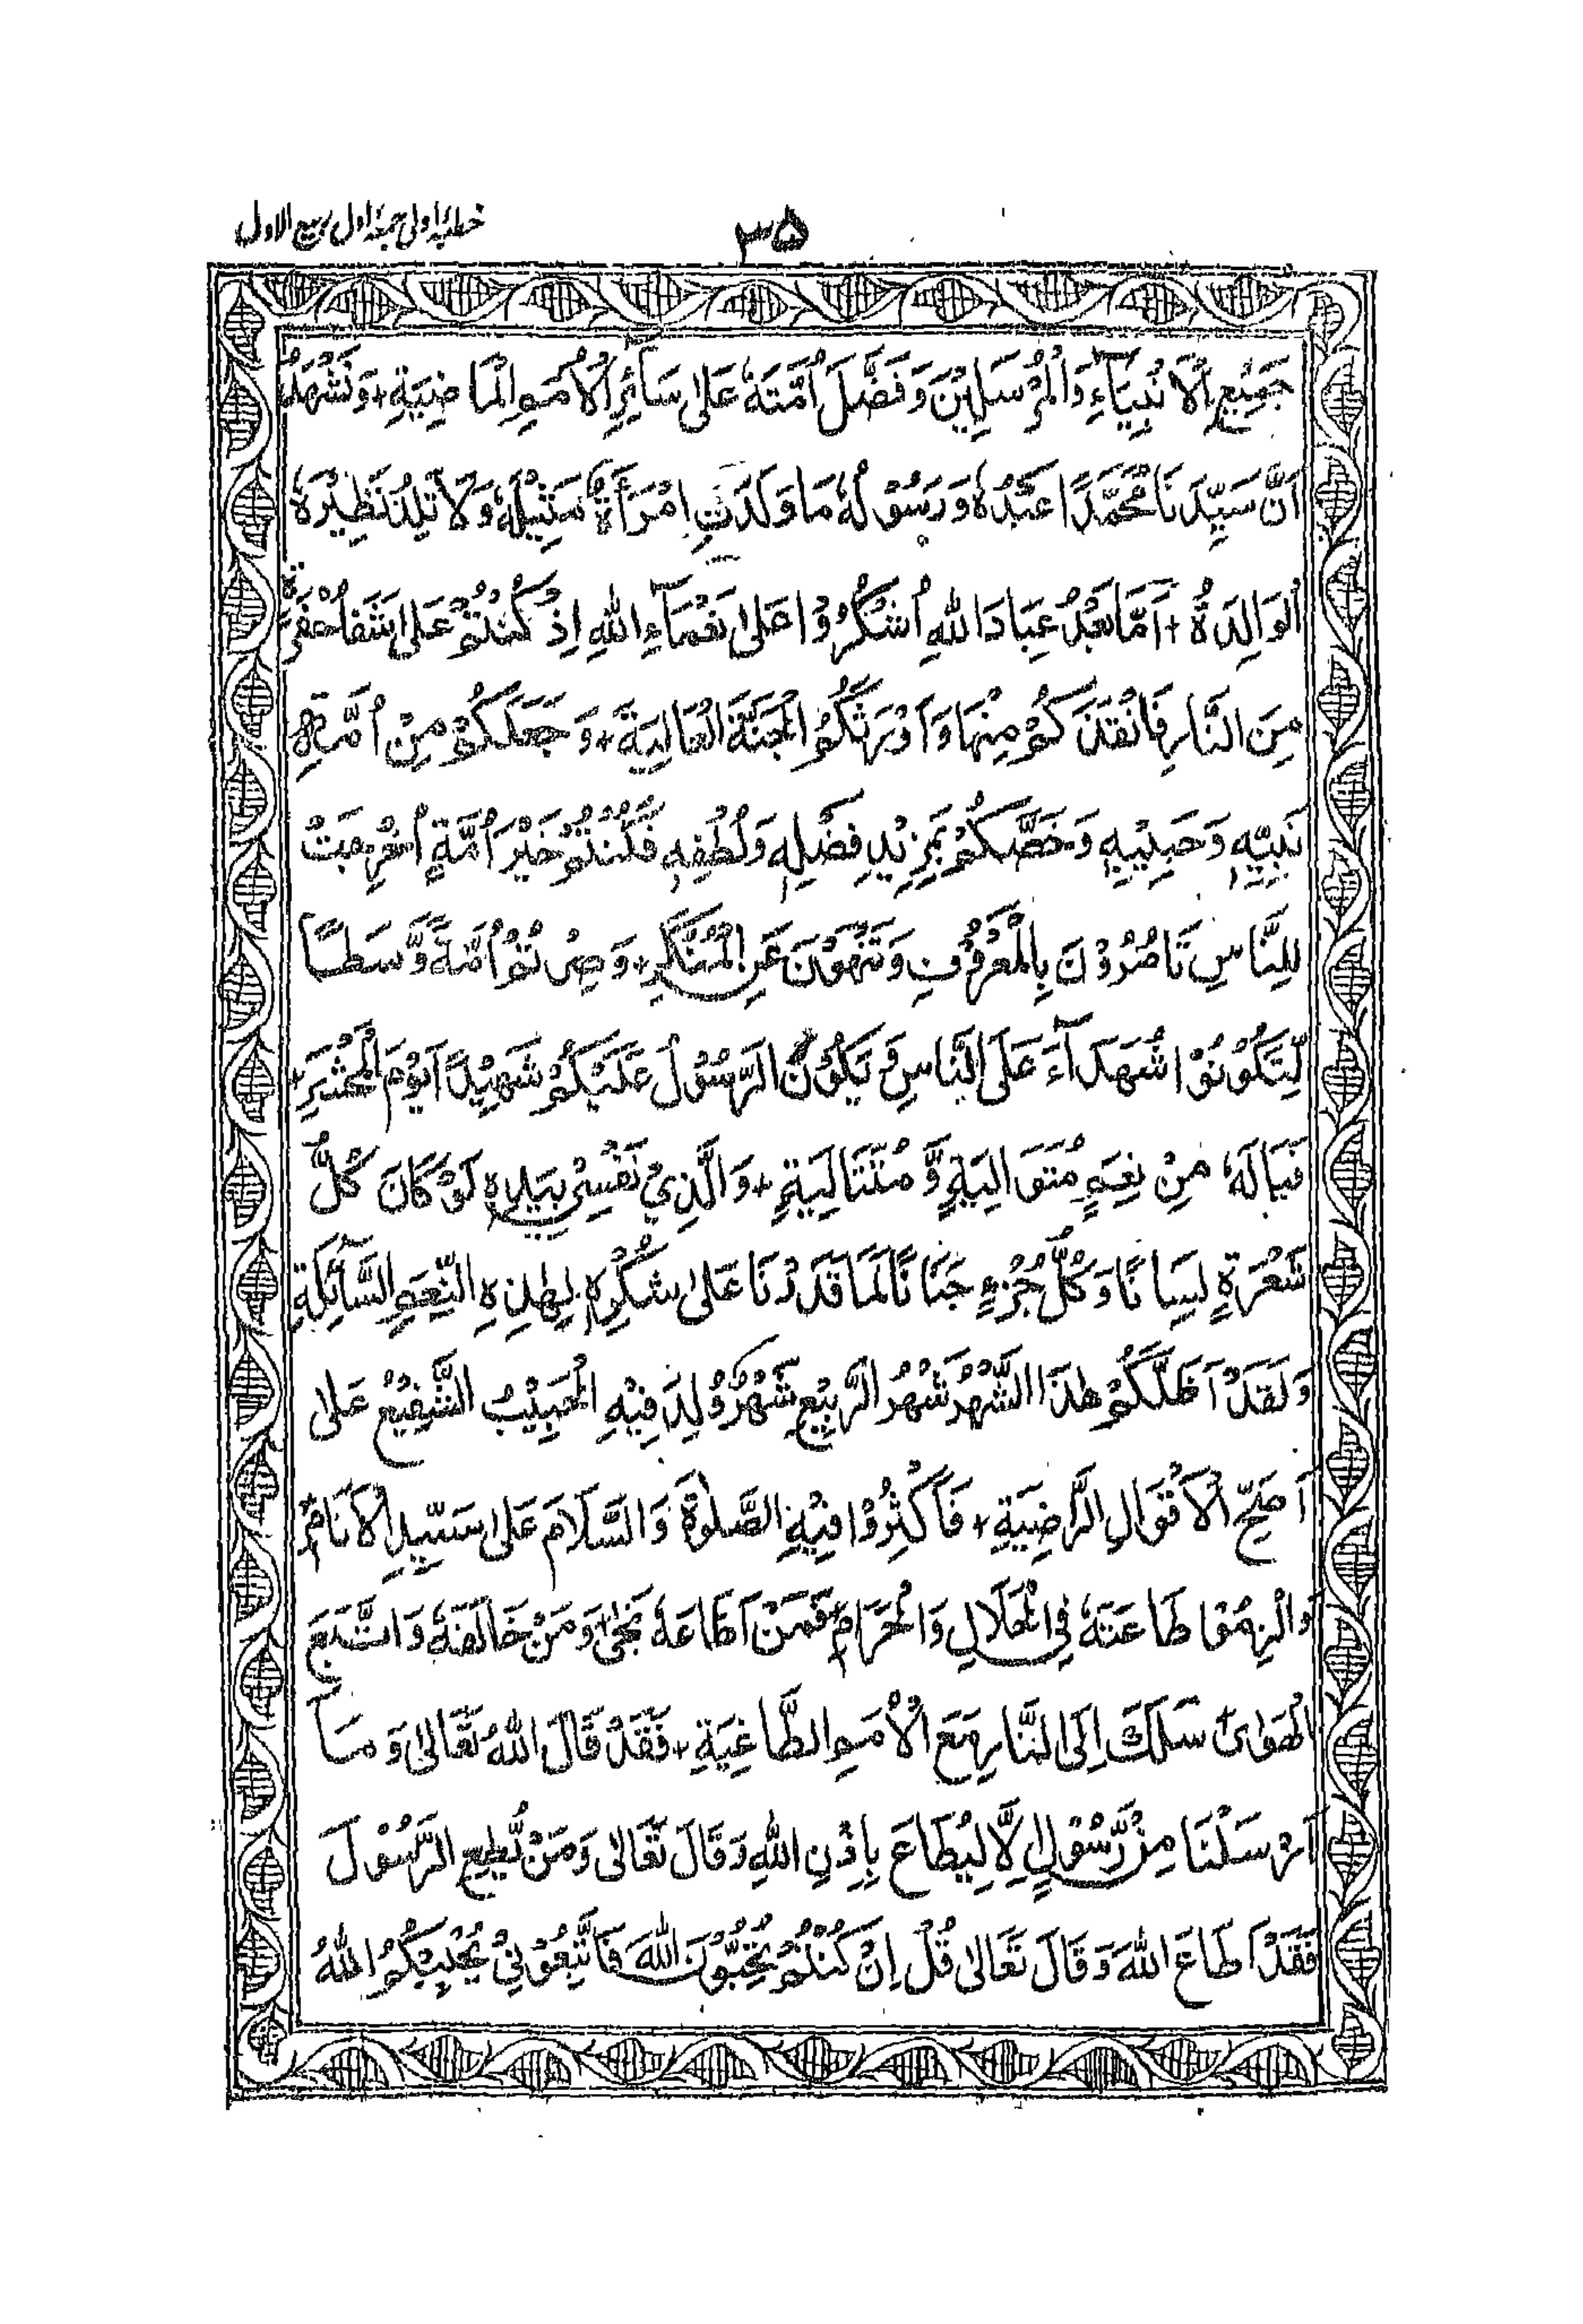 خطبۂ اولی جمعۂ اول ربیع الاول
۳۵
جَمِيْعِ الْاَنْبِيَآءِ وَالْمُرْسَلِيْنَ وَفَضَّلَ اُمَّتَهٗ عَلٰى سَآئِرِ الْاُمَمِ الْمَاضِيَةِ + وَنَشْهَدُ
اَنَّ سَيِّدَنَا مُحَمَّدًا عَبْدُهٗ وَرَسُوْلُهٗ مَا وَلَدَتِ امْرَأَةٌ مَثِيْلَهٗ وَلَا تَلِدُ نَظِيْرَهٗ
الْوَالِدَةُ + اَمَّا بَعْدُ عِبَادَ اللهِ اُشْكُرُوْا عَلٰى نَعْمَآءِ اللهِ اِذْ كُنْتُمْ عَلٰى شَفَا حُفْرَةٍ
مِنَ النَّارِ فَاَنْقَذَكُمْ مِنْهَا وَاَوْرَثَكُمُ الْجَنَّةَ الْعَالِيَةَ + وَجَعَلَكُمْ مِنْ اُمَّةِ
نَبِيِّهٖ وَحَبِيْبِهٖ وَخَصَّكُمْ بِمَزِيْدِ فَضْلِهٖ وَلُطْفِهٖ فَكُنْتُمْ خَيْرَ اُمَّةٍ اُخْرِجَتْ
لِلنَّاسِ تَامُرُوْنَ بِالْمَعْرُوْفِ وَتَنْهَوْنَ عَنِ الْمُنْكَرِ + وَصِرْتُمْ اُمَّةً وَّسَطًا
لِّتَكُوْنُوْا شُهَدَآءَ عَلَى النَّاسِ وَيَكُوْنَ الرَّسُوْلُ عَلَيْكُمْ شَهِيْدًا يَوْمَ الْمَحْشَرِ +
فَيَالَهٗ مِنْ نِعَمٍ مُتَوَالِيَةٍ وَّمُتَتَالِيَةٍ + وَالَّذِيْ نَفْسِيْ بِيَدِهٖ لَوْ كَانَ كُلُّ
شَعْرَةٍ لِسَانًا وَكُلُّ جُزْءٍ جَنَانًا لَمَا قَدَرْنَا عَلٰى شُكْرِهٖ لِهٰذِهِ النِّعَمِ السَّآئِلَةِ
وَلَقَدْ اَظَلَّكُمْ هٰذَا الشَّهْرُ شَهْرُ الرَّبِيْعِ شَهْرٌ وُلِدَ فِيْهِ الْحَبِيْبُ الشَّفِيْعُ عَلٰى
اَصَحِّ الْاَقْوَالِ الرَّاضِيَةِ + فَاَكْثِرُوْا فِيْهِ الصَّلٰوةَ وَالسَّلَامَ عَلٰى سَيِّدِ الْاَنَامِ +
وَالْزِمُوْا طَاعَتَهٗ فِي الْحَلَالِ وَالْحَرَامِ + فَمَنْ اَطَاعَهٗ نَجٰى وَمَنْ خَالَفَهٗ وَاتَّبَعَ
الْهَوٰى سَلَكَ اِلَى النَّارِ مَعَ الْاُمَمِ الطَّاغِيَةِ + فَقَدْ قَالَ اللهُ تَعَالٰى وَمَآ
اَرْسَلْنَا مِنْ رَّسُوْلٍ اِلَّا لِيُطَاعَ بِاِذْنِ اللهِ وَقَالَ تَعَالٰى وَمَنْ يُّطِعِ الرَّسُوْلَ
فَقَدْ اَطَاعَ اللهَ وَقَالَ تَعَالٰى قُلْ اِنْ كُنْتُمْ تُحِبُّوْنَ اللهَ فَاتَّبِعُوْنِيْ يُحْبِبْكُمُ اللهُ